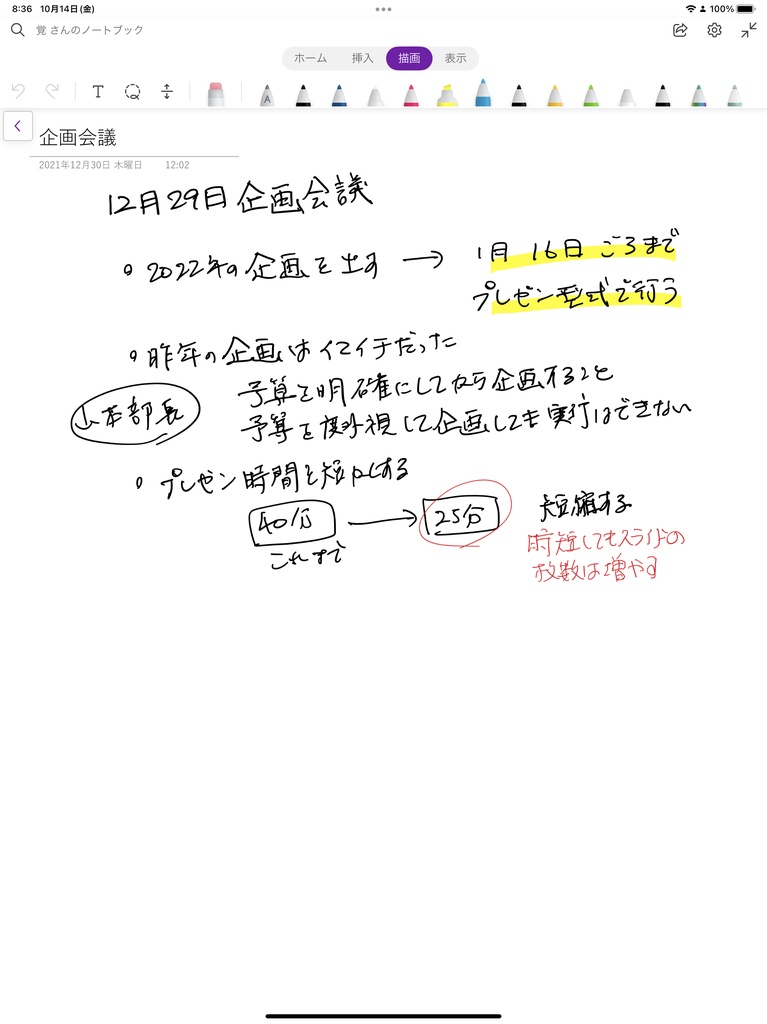 8:36 10月14日(金)
100%
覚 さんのノートブック
ホーム 挿入 描画 表示
T
A
企画会議
2021年12月30日 木曜日 12:02
12月29日企画会議
2022年の企画を出す → 1月16日ごろまで
プレゼン型式で行う
昨年の企画はイマイチだった
山本部長
予算を明確にしてから企画すること
予算を度外視して企画しても実行はできない
プレゼン時間を短くする
40分 → 25分
これまで
短縮する
時短してもスライドの
枚数は増やす